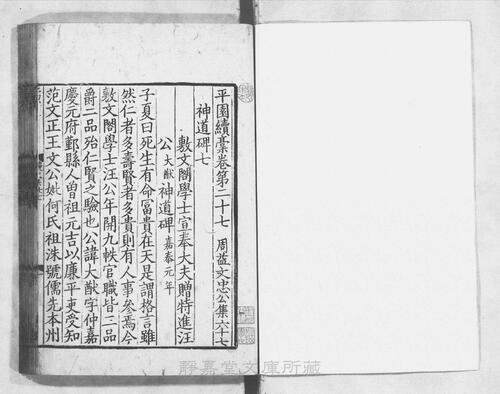 平園續稾卷第二十七 周益文忠公集六十七
神道碑七
敷文閣學士宣奉大夫贈特進汪
公大猷神道碑 嘉泰元年
子夏曰死生有命冨貴在天是謂格言雖
然仁者多壽賢者多貴則有人事參焉今
敷文閣學士汪公年開九帙官職皆二品
爵二品殆仁賢之驗也公諱大猷字仲嘉
慶元府鄞縣人曽祖元吉以廉平吏受知
范文正王文公妣何氏祖洙號儒先本州
靜嘉堂文庫所藏